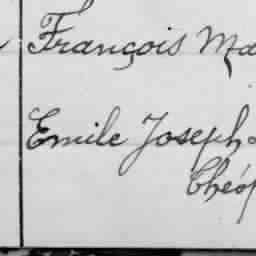 François Ma
Emile Joseph
Théop